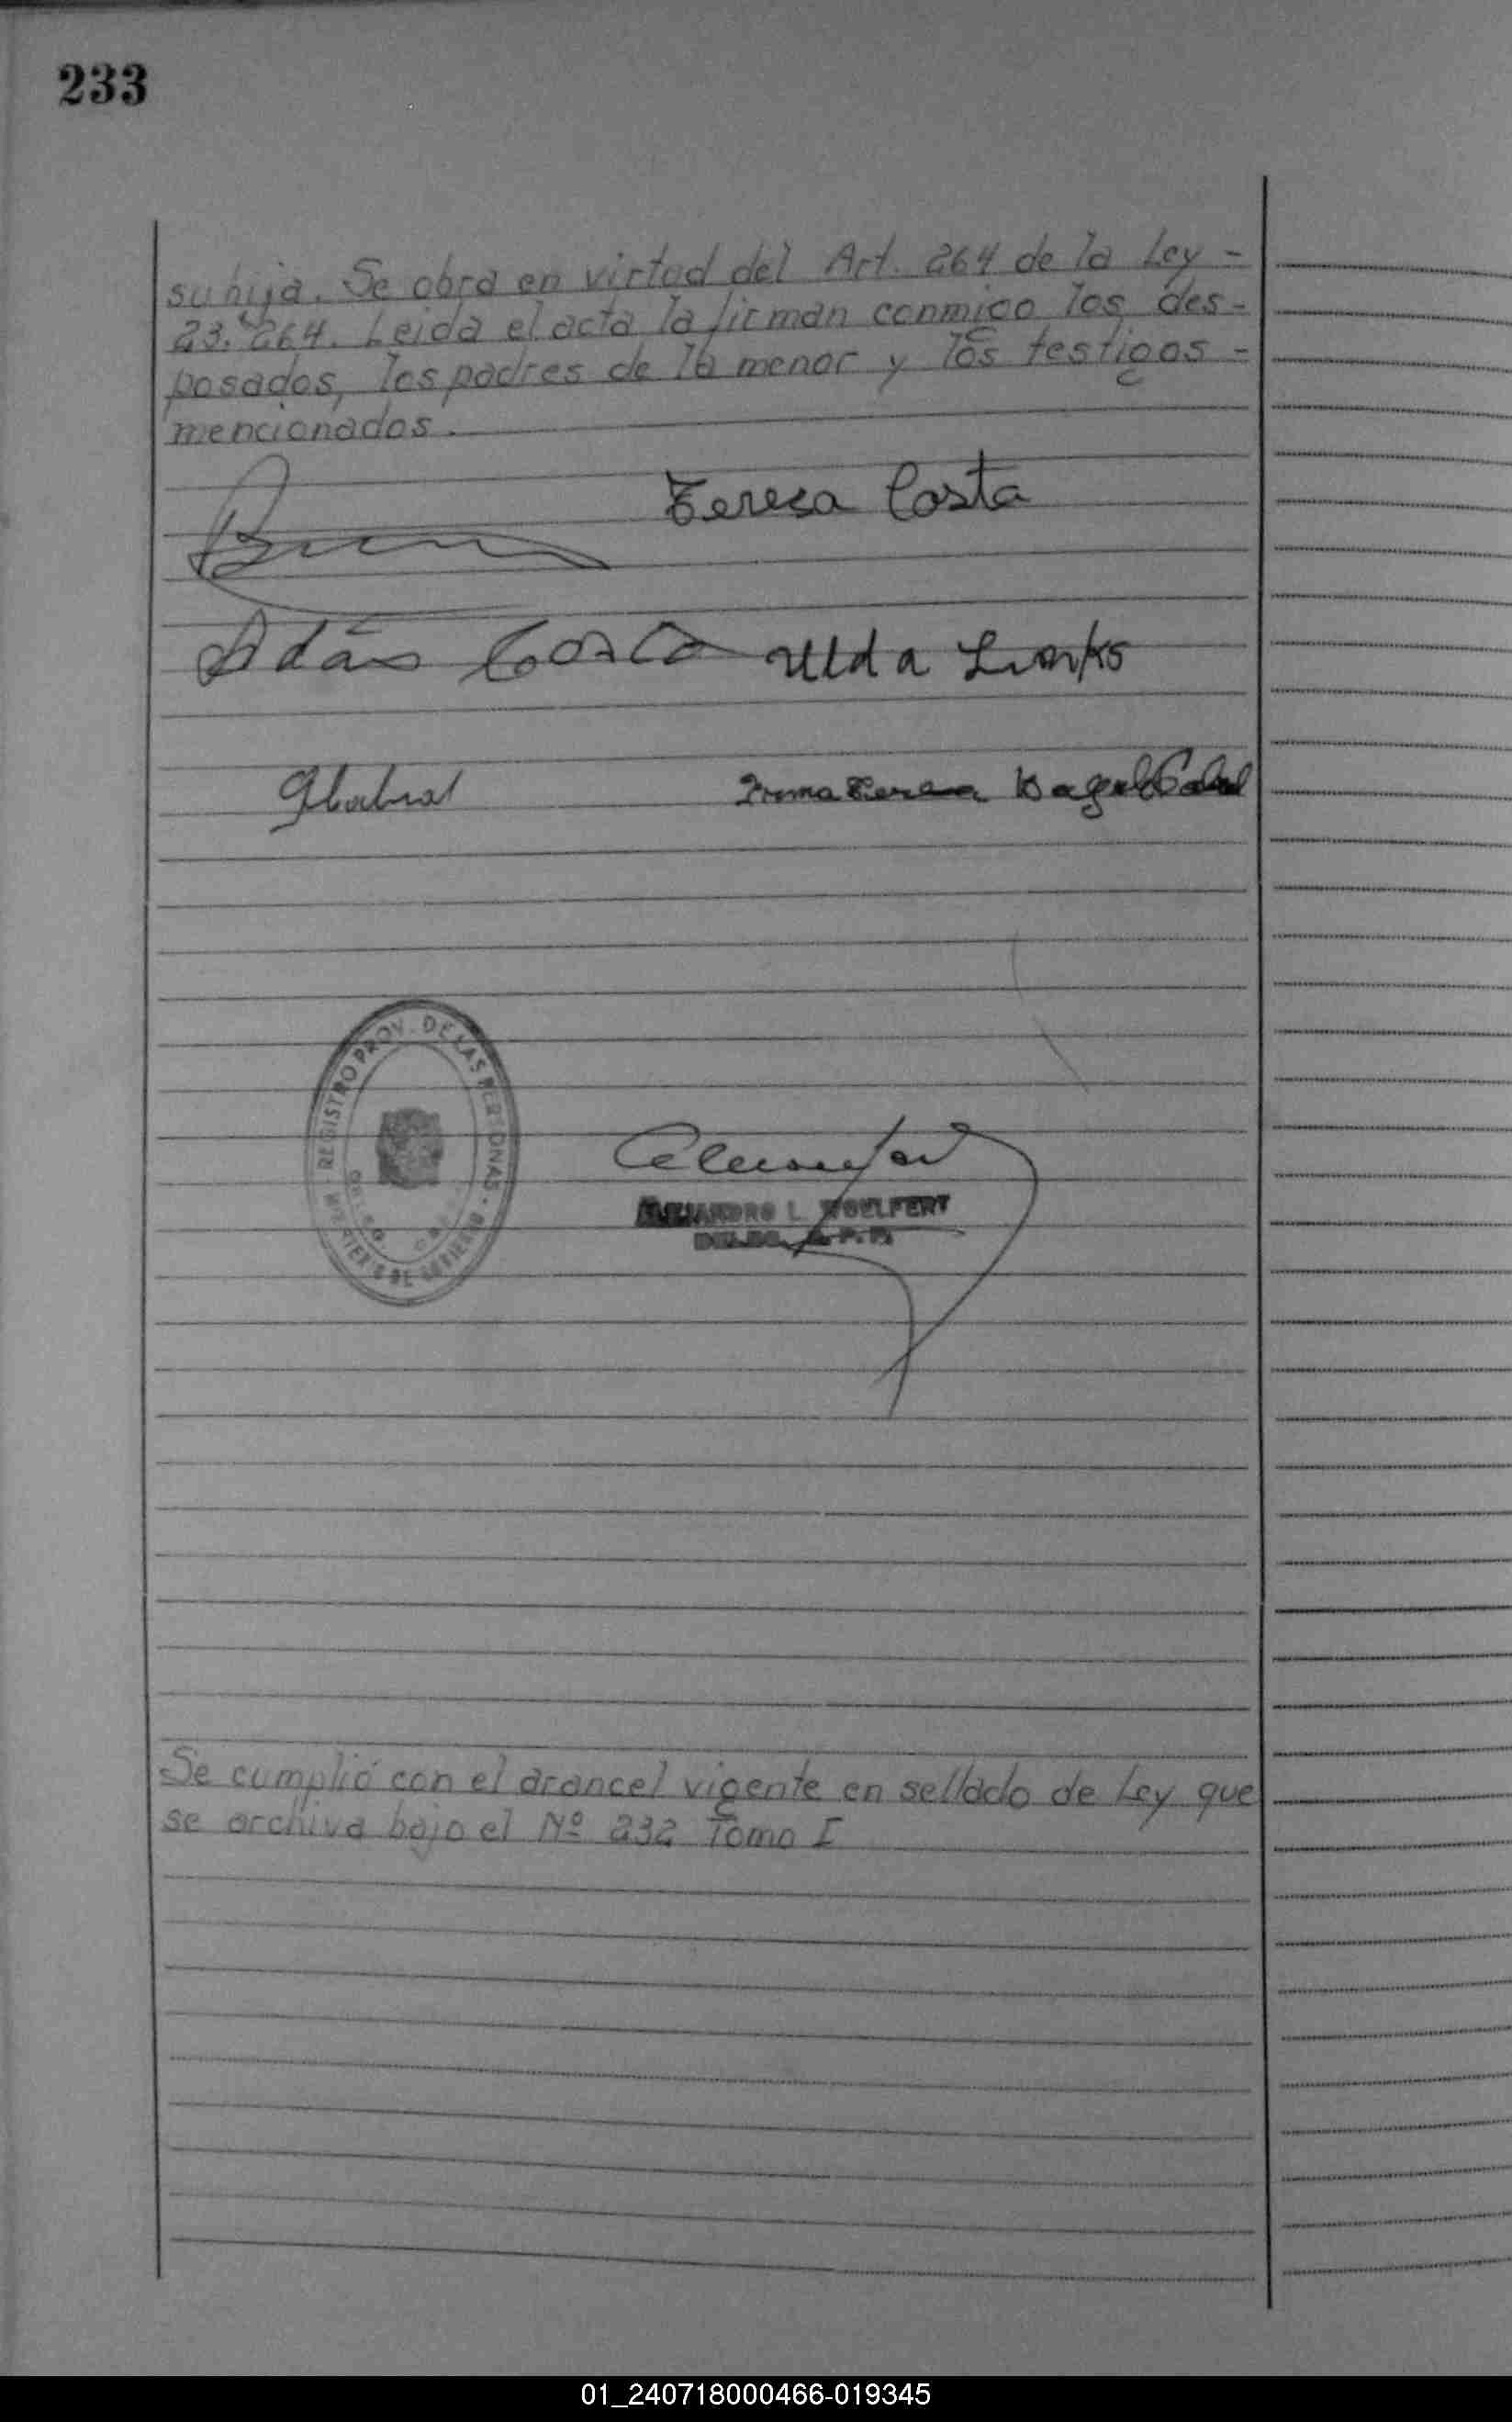 233
su hija. Se obra en virtud del Art. 264 de la Ley -
23.264. Leida el acta la firman conmigo los des-
posados, los padres de la menor y los testigos -
mencionados.
Teresa Costa
Adão Costa Ulda
Irma Teresa
REGISTRO PROV. DE LAS PERSONAS
ALEJANDRO L. WOELFERT
Se cumplió con el arancel vigente en sellado de Ley que
se archiva bajo el Nº 232 Tomo I
01_240718000466-019345